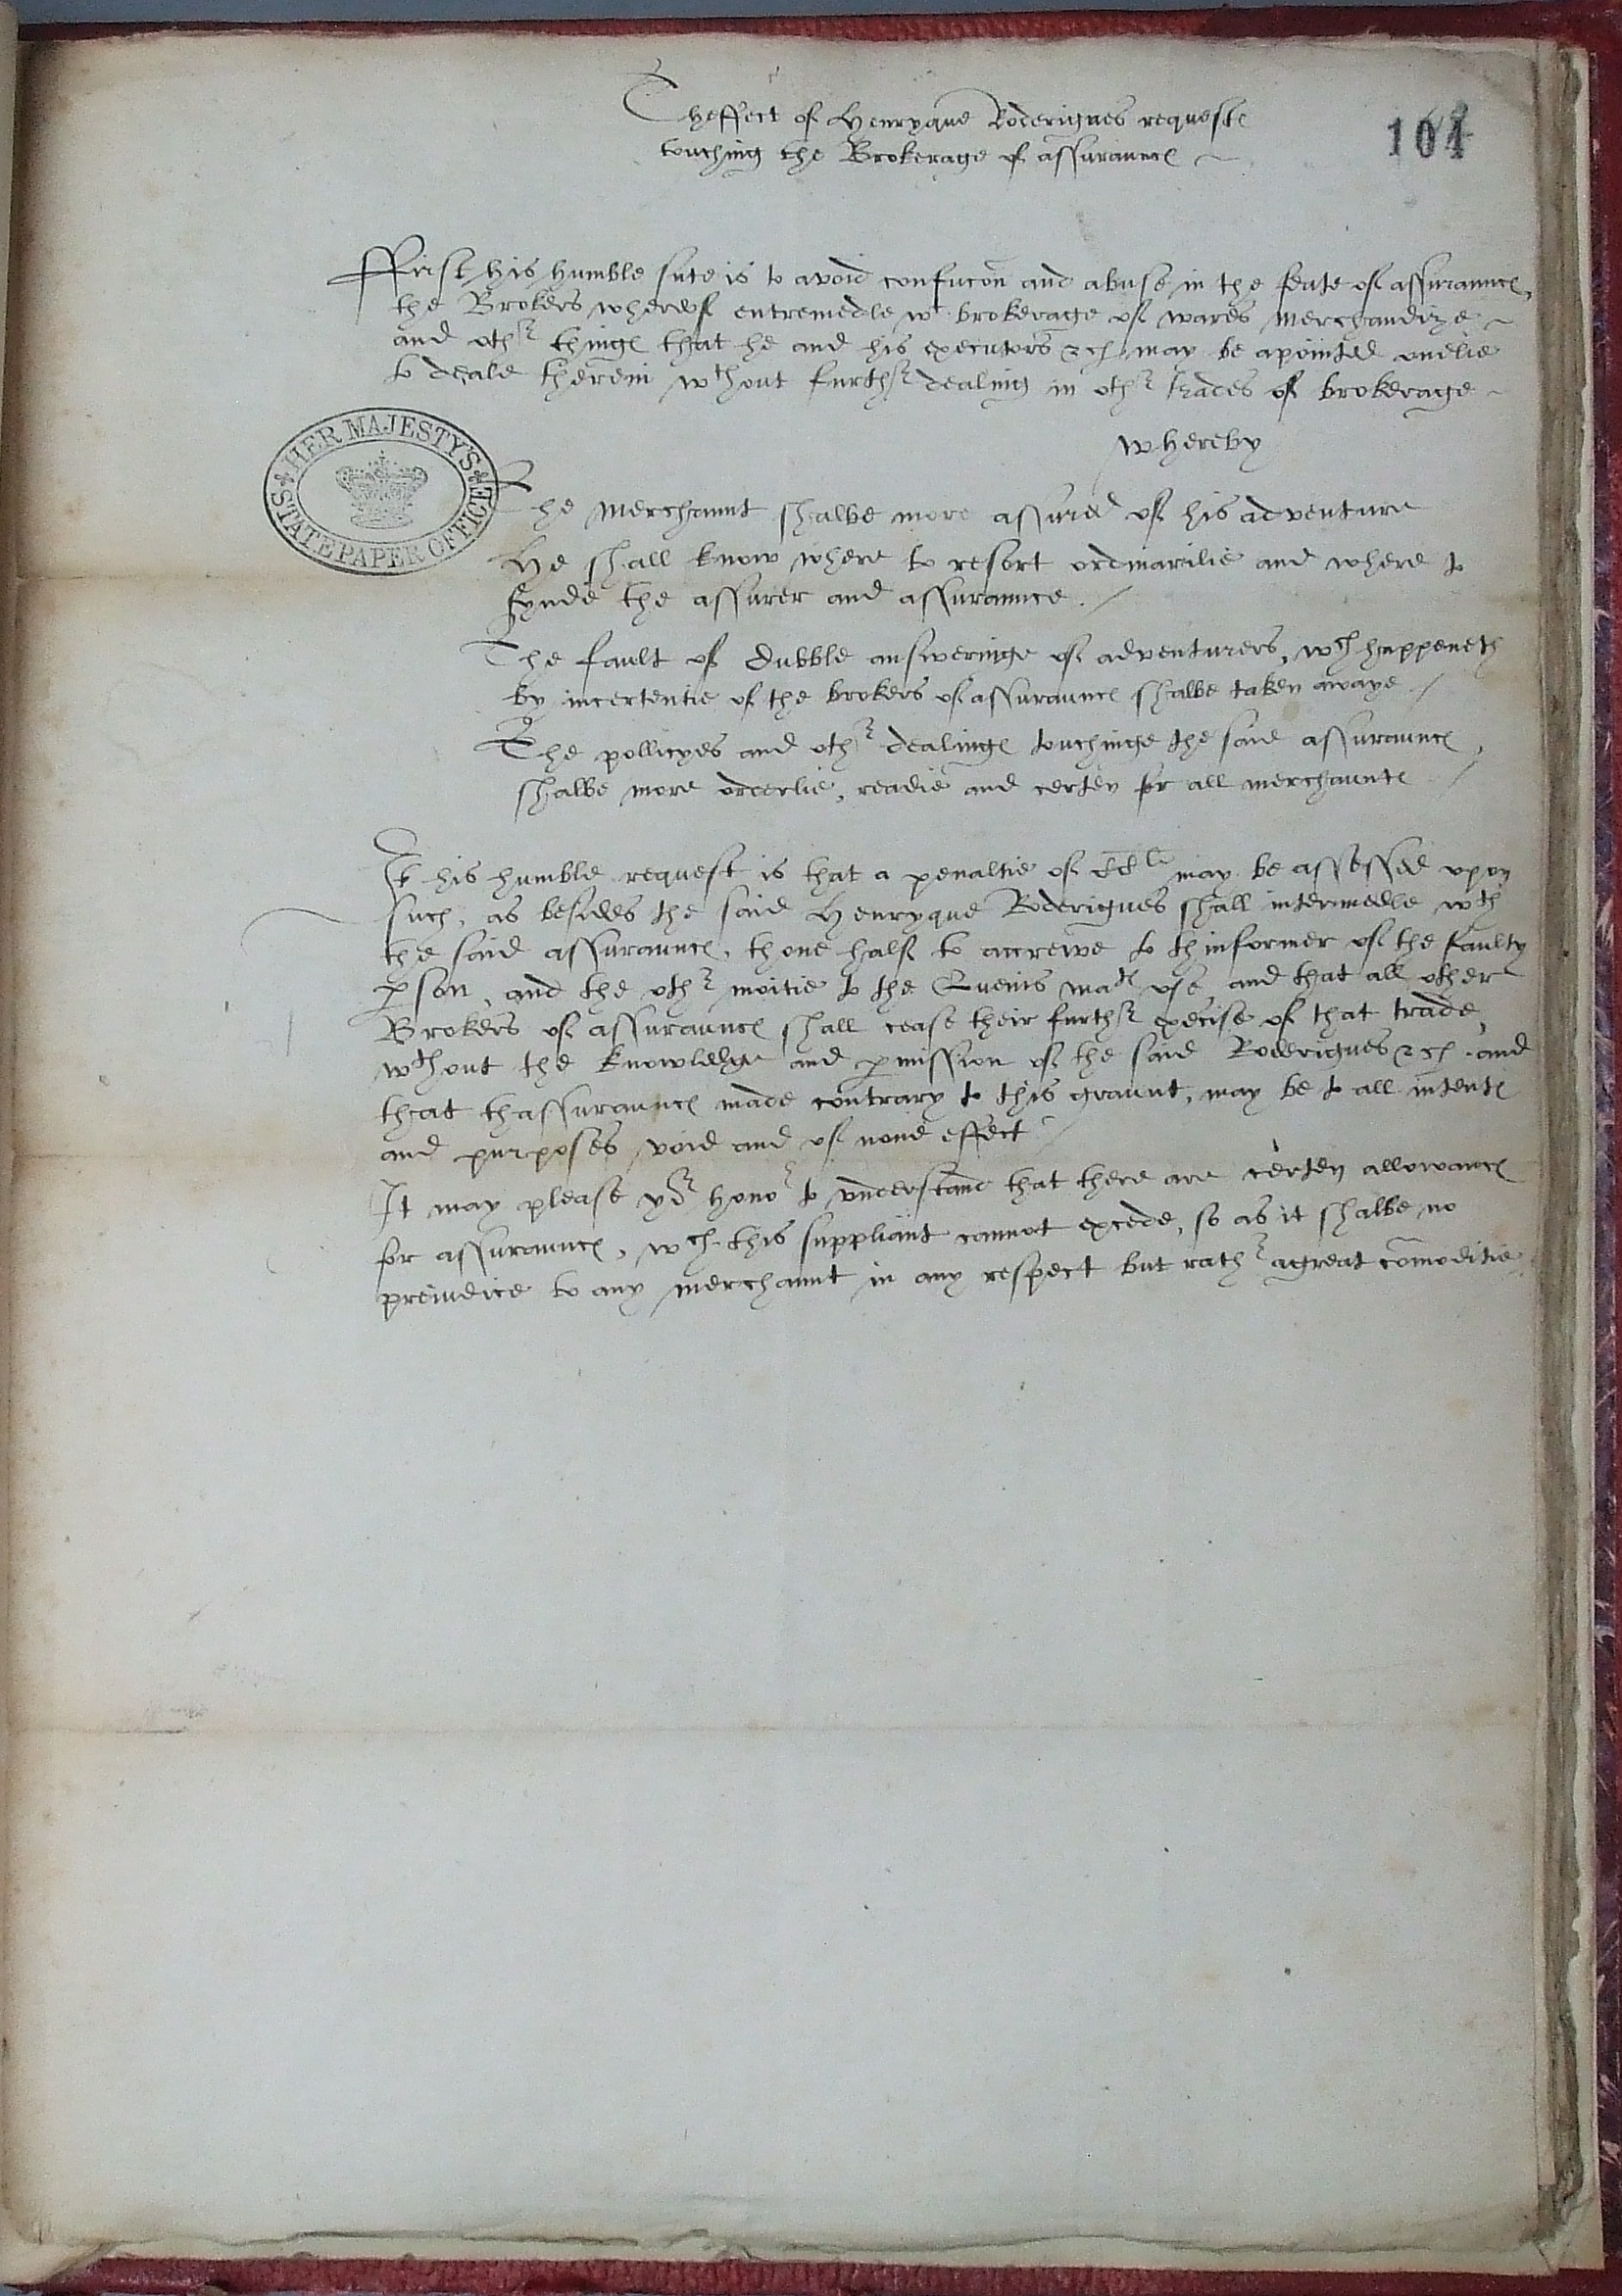 Theffect of Henryque Roderigues requeste
touching the Brokerage of assuraunce
104
First his humble sute is to avoid confucon and abuse in the feate of assuraunces,
the Brokers wherof entremedle wt brokerage of wares merchandize
and othr thinges that he and his executors &c may be apointed onelie
to deale therein wthout furthr dealing in othr trades of brokerage
whereby
HER MAJESTY'S STATE PAPER OFFICE
The merchaunt shalbe more assured of his adventure
He shall know where to resort ordinarilie and where to
fynde the assurer and assuraunce.
The fault of dubble answeringe of adventurers, wch happeneth
by incertentie of the brokers of assuraunces shalbe taken awaye
The pollicyes and othr dealinges touchinge the said assuraunces,
shalbe more orderlie, readie and certen for all merchauntes
It his humble request is that a penaltie of CCli may be assessed upon
such, as besides the said Henryque Roderigues shall intermedle wth
the said assuraunces, thone half to accrewe to thinformer of the faulty
pson, and the othr moitie to the Quenis mates use and that all other
Brokers of assuraunces shall cease their furthr excercise of that trade,
wthout the knowledge and pmission of the said Roderigues &c. and
that thassuraunces made contrary to this graunt, may be to all intentes
and purposes void and of none effect
It may please yor honor to understand that there are certen allowances
for assuraunces, wch this suppliant cannot excede, so as it shalbe no
preiudice to any merchaunt in any respect but rathr agreat comoditie